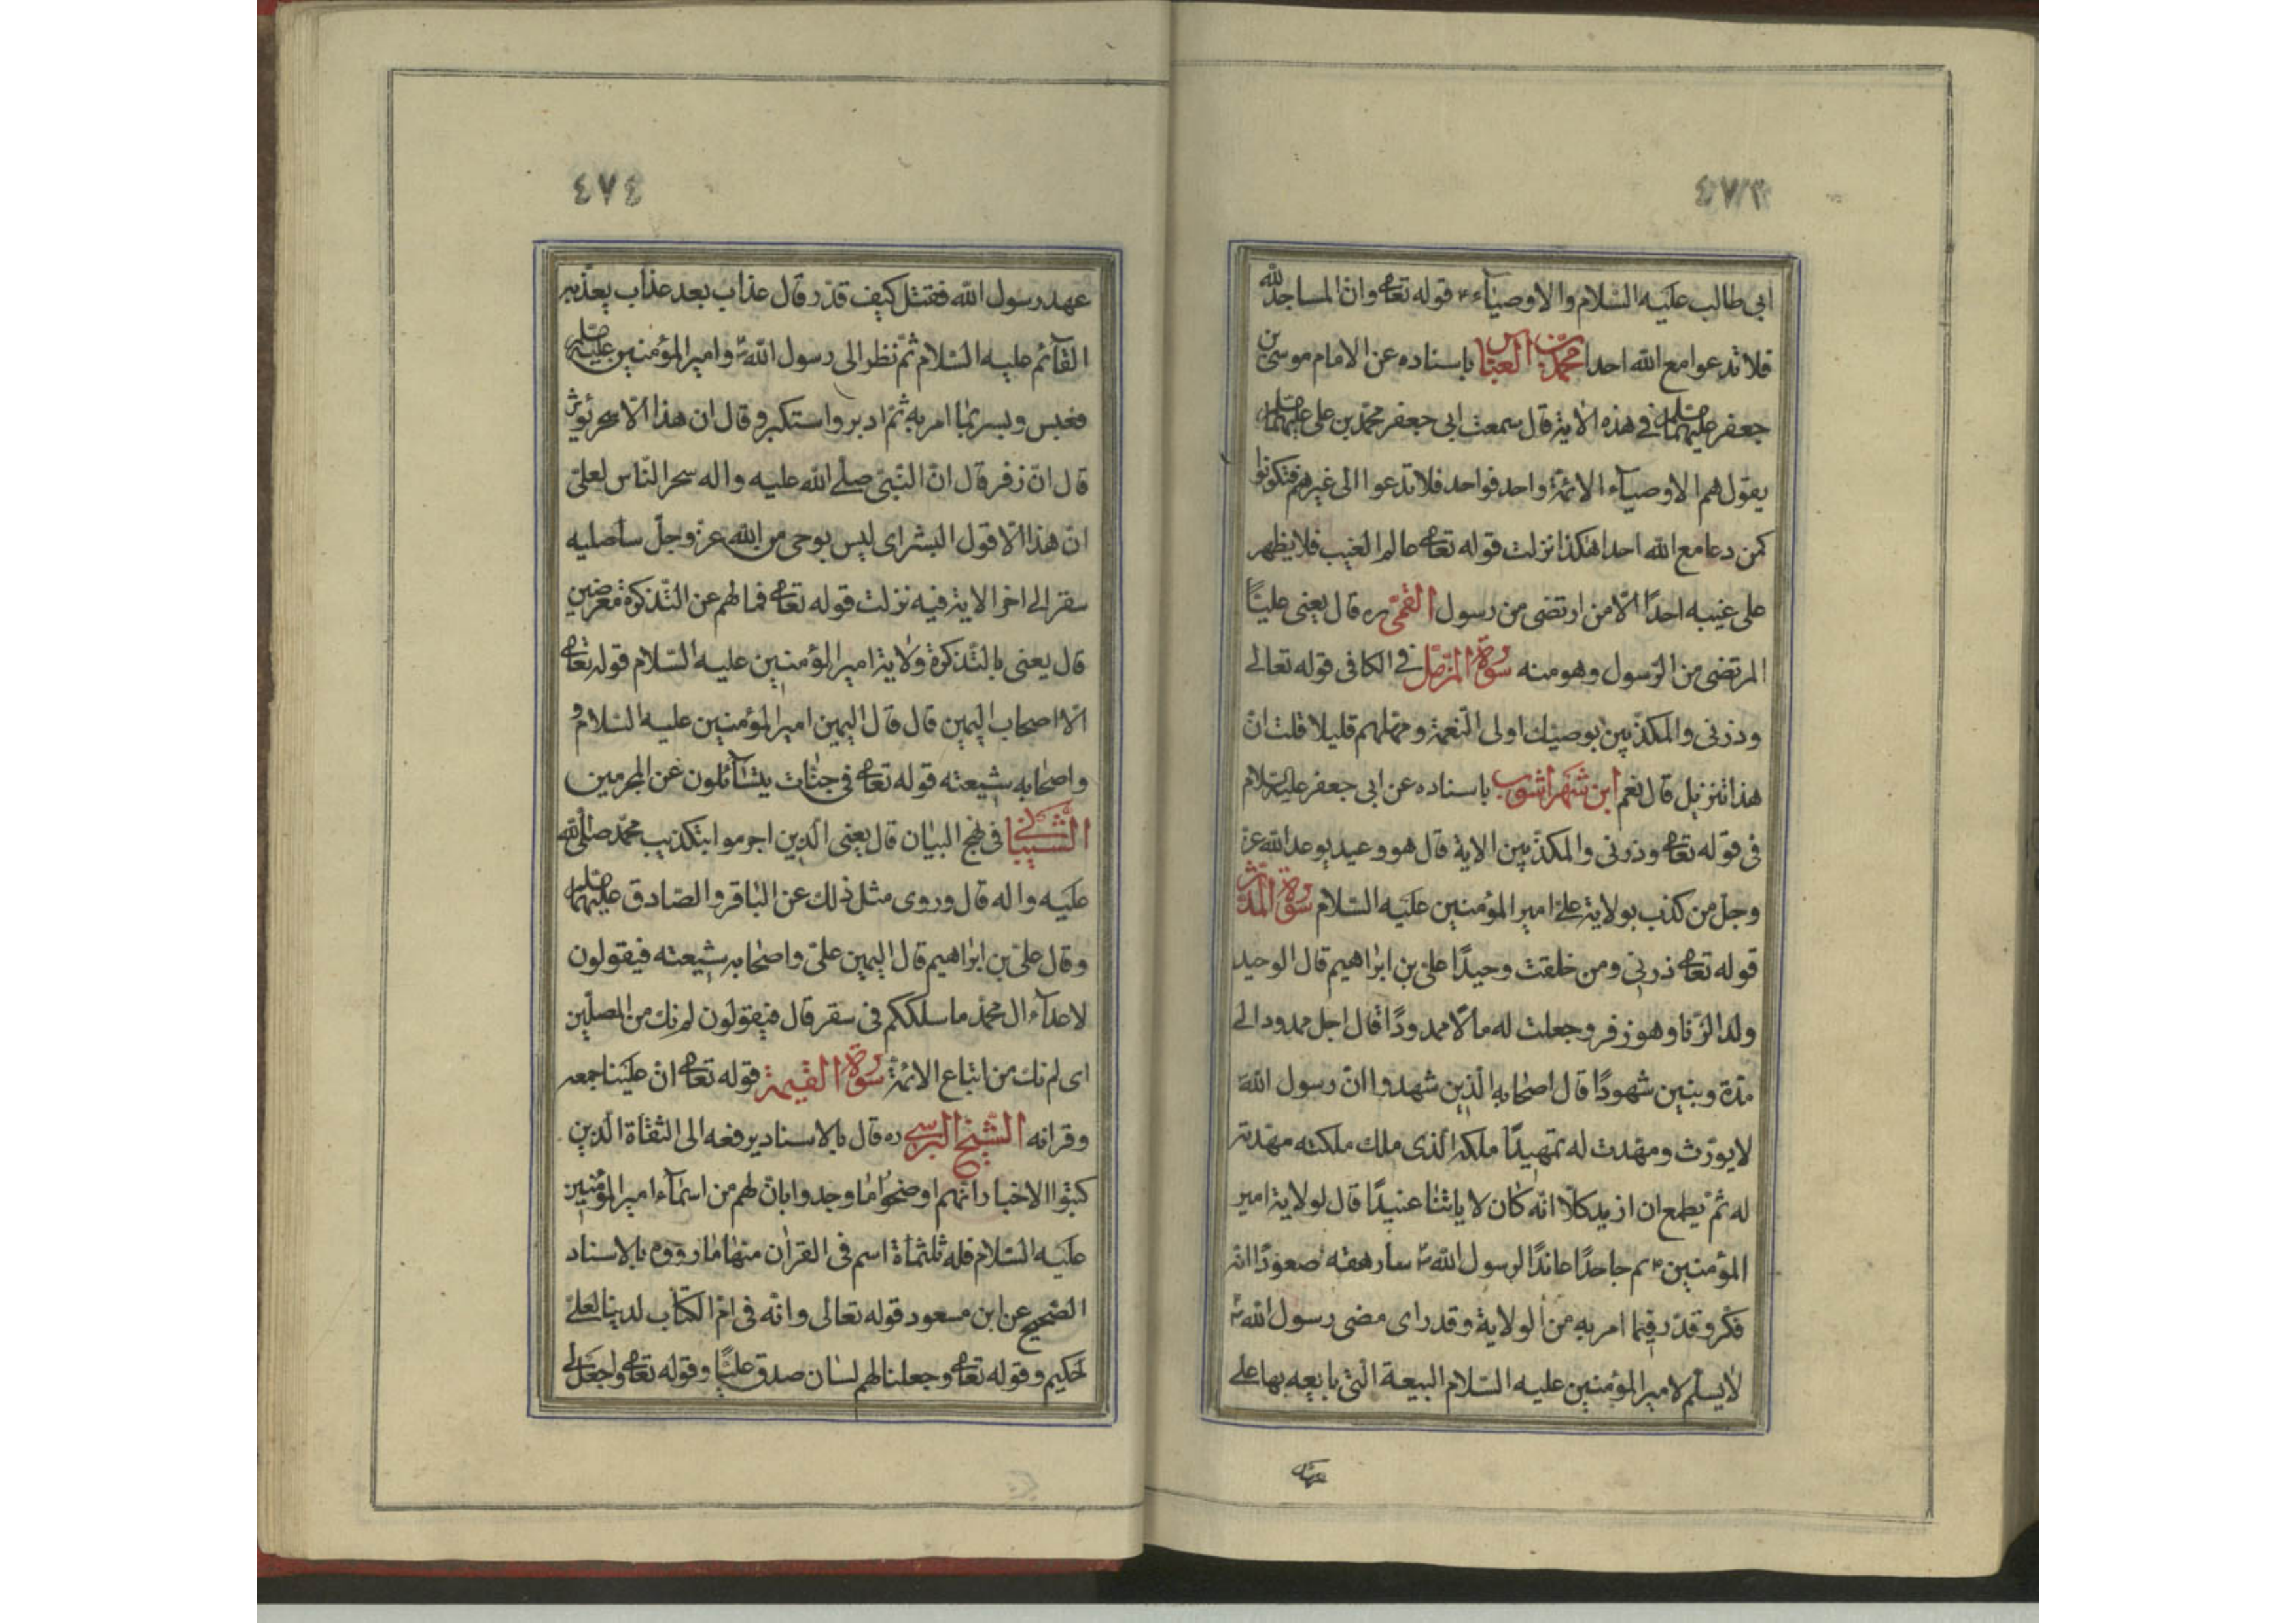 ٤٧٣
ابی طالب علیه السّلام والاوصیآء ء قوله تعا وانّ المساجد لله
فلا تدعوا مع الله احدا محمّد بن العبّاس باسناده عن الامام موسی بن
جعفر علیهما فی هذه الایة قال سمعت ابی جعفر محمّد بن علی علیهما
یقول هم الاوصیآء الائمّة واحد فواحد فلا تدعوا الی غیرهم فتکونوا
کمن دعا مع الله احدا هکذا نزلت قوله تعا عالم الغیب فلا یظهر
علی غیبه احدًا الّا من ارتضی من رسول القمّی ره قال یعنی علیّاً
المرتضی من الرّسول وهو منه سورة المزمّل فی الکافی قوله تعالی
وذرنی والمکذّبین بوصیّك اولی النّعمة ومهّلهم قلیلا قلت انّ
هذا تنزیل قال نعم ابن شهراشوب باسناده عن ابی جعفر علیه السّلام
فی قوله تعا وذرنی والمکذّبین الایة قال هو وعید یوعد الله عزّ
وجلّ من کذب بولایة علیّ امیر المؤمنین علیه السّلام سورة المدّثّر
قوله تعا ذرنی ومن خلقت وحیدًا علیّ بن ابراهیم قال الوحید
ولد الزّنا وهو زفر وجعلت له مالًا ممدودًا قال اجل ممدود الی
مدّة وبنین شهودًا قال اصحابه الّذین شهدوا انّ رسول الله
لا یورّث ومهّدت له تمهیدًا ملکه الّذی ملك ملکته مهّدته
له ثمّ یطمع ان ازید کلّا انّه کان لایاتنا عنیدًا قال لولایة امیر
المؤمنین جاحدًا عاندًا لرسول الله سأرهقه صعودًا انّه
فکّر وقدّر فیما امر به من الولایة وقدر ای مضی رسول الله
لا یسلّم لامیر المؤمنین علیه السّلام البیعة الّتی بایعه بها علی
عهد
٤٧٤
عهد رسول الله فقتل کیف قدّر قال عذاب بعد عذاب یعذّبه
القآئم علیه السّلام ثمّ نظر الی رسول الله وامیر المؤمنین علیه
فعبس وبسر ممّا امر به ثمّ ادبر واستکبر وقال ان هذا الّا سحر یؤثر
قال انّ زفر قال انّ النّبیّ صلّی الله علیه واله سحر النّاس لعلیّ
ان هذا الّا قول البشر ای لیس بوحی من الله عزّ وجلّ سأصلیه
سقر الی اخر الایة فیه نزلت قوله تعا فما لهم عن التّذکرة معرضین
قال یعنی بالتّذکرة ولایة امیر المؤمنین علیه السّلام قوله تعا
الّا اصحاب الیمین قال قال الیمین امیر المؤمنین علیه السّلام و
واصحابه شیعته قوله تعا فی جنّات یتسآئلون عن المجرمین
الشّیبانی فی نهج البیان قال یعنی الّذین اجرموا بتکذیب محمّد صلّی الله
علیه واله قال وروی مثل ذلك عن الباقر والصّادق علیهما
وقال علیّ بن ابراهیم قال الیمین علیّ واصحابه شیعته فیقولون
لاعدآء ال محمّد ما سلککم فی سقر قال فیقولون لم نك من المصلّین
ای لم نك من اتباع الائمّة سورة القیمة قوله تعا انّ علینا جمعه
وقرانه الشّیخ البرسی ره قال بالاسناد یرفعه الی الثّقاة الّذین
کتبوا الاخبار انّهم اوضحوا ما وجدوا بان لهم من اسمآء امیر المؤمنین
علیه السّلام فله ثلثمأة اسم فی القران منها ما رووه بالاسناد
الصّحیح عن ابن مسعود قوله تعالی وانّه فی امّ الکتاب لدینا لعلیّ
حکیم وقوله تعا وجعلنا لهم لسان صدق علیّاً وقوله تعا واجعل لی